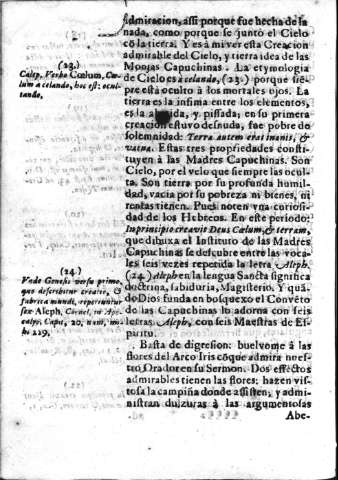 Admiracion, assi porque fue hecha de la
nada, como porque se juntò el Cielo
cõ la tierra. Y es à mi ver esta Creacion
admirable del Cielo, y tierra idea de las
Monjas Capuchinas. La etymologia
de Cielo es à celando, (23.) porque siẽ-
pre està oculto à los mortales ojos. La
tierra es la infima entre los elementos,
es la y pissada; en su primera
creacion estuvo desnuda, fue pobre de
solemnidad: Terra autem erat inanis, &
vacua. Estas tres propriedades consti-
tuyen à las Madres Capuchinas. Son
Cielo, por el velo que siempre las ocul-
ta. Son tierra por su profunda humil-
dad, vacia por su pobreza ni bienes, ni
rentas tienen. Pues noten vna curiosi-
dad de los Hebreos. En este periodo:
In principio creavit Deus Cœlum, & terram,
que dibuxa el Instituto de las Madres
Capuchinas se descubre entre las voca-
les seis vezes repetida la letra Aleph.
(24.) Aleph en la lengua Sancta significa
doctrina, sabiduria, Magisterio. Y quã-
do Dios funda en bosquexo el Convẽto
de las Capuchinas lo adorna con seis
letras Aleph, con seis Maestras de Es-
piritu.
Basta de digresion: buelvome à las
flores del Arco Iris cõ que admira nues-
tro Orador en su Sermon. Dos effectos
admirables tienen las flores: hazen vis-
tosa la campiña donde assisten, y admi-
nistran dulzuras à las argumentosas
Abe-
(23.)
Calep. Verbo Cœlum, Cœ-
lum à celando, hoc est: ocul-
tando.
(24.)
Vnde Genesis versu primo,
quo describitur creatio, &
fabrica mundi, reperiuntur
sex Aleph, Cornel. in Apo-
calyp. Capit. 20. num. mi-
hi 229.